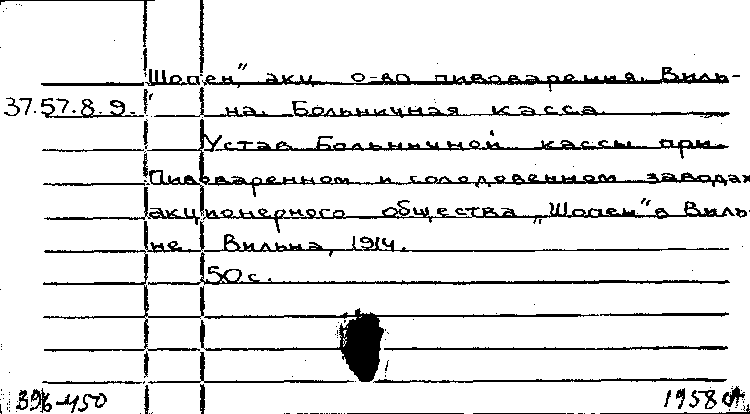 „Шопен", акц. о-во пивоварения. Виль-
37.57.8.9. на. Больничная касса.
Устав Больничной кассы при
Пивоваренном и солодовенном заводах
акционерного общества „Шопен" в Виль-
не. Вильна, 1914.
50 с.
396-450 1958